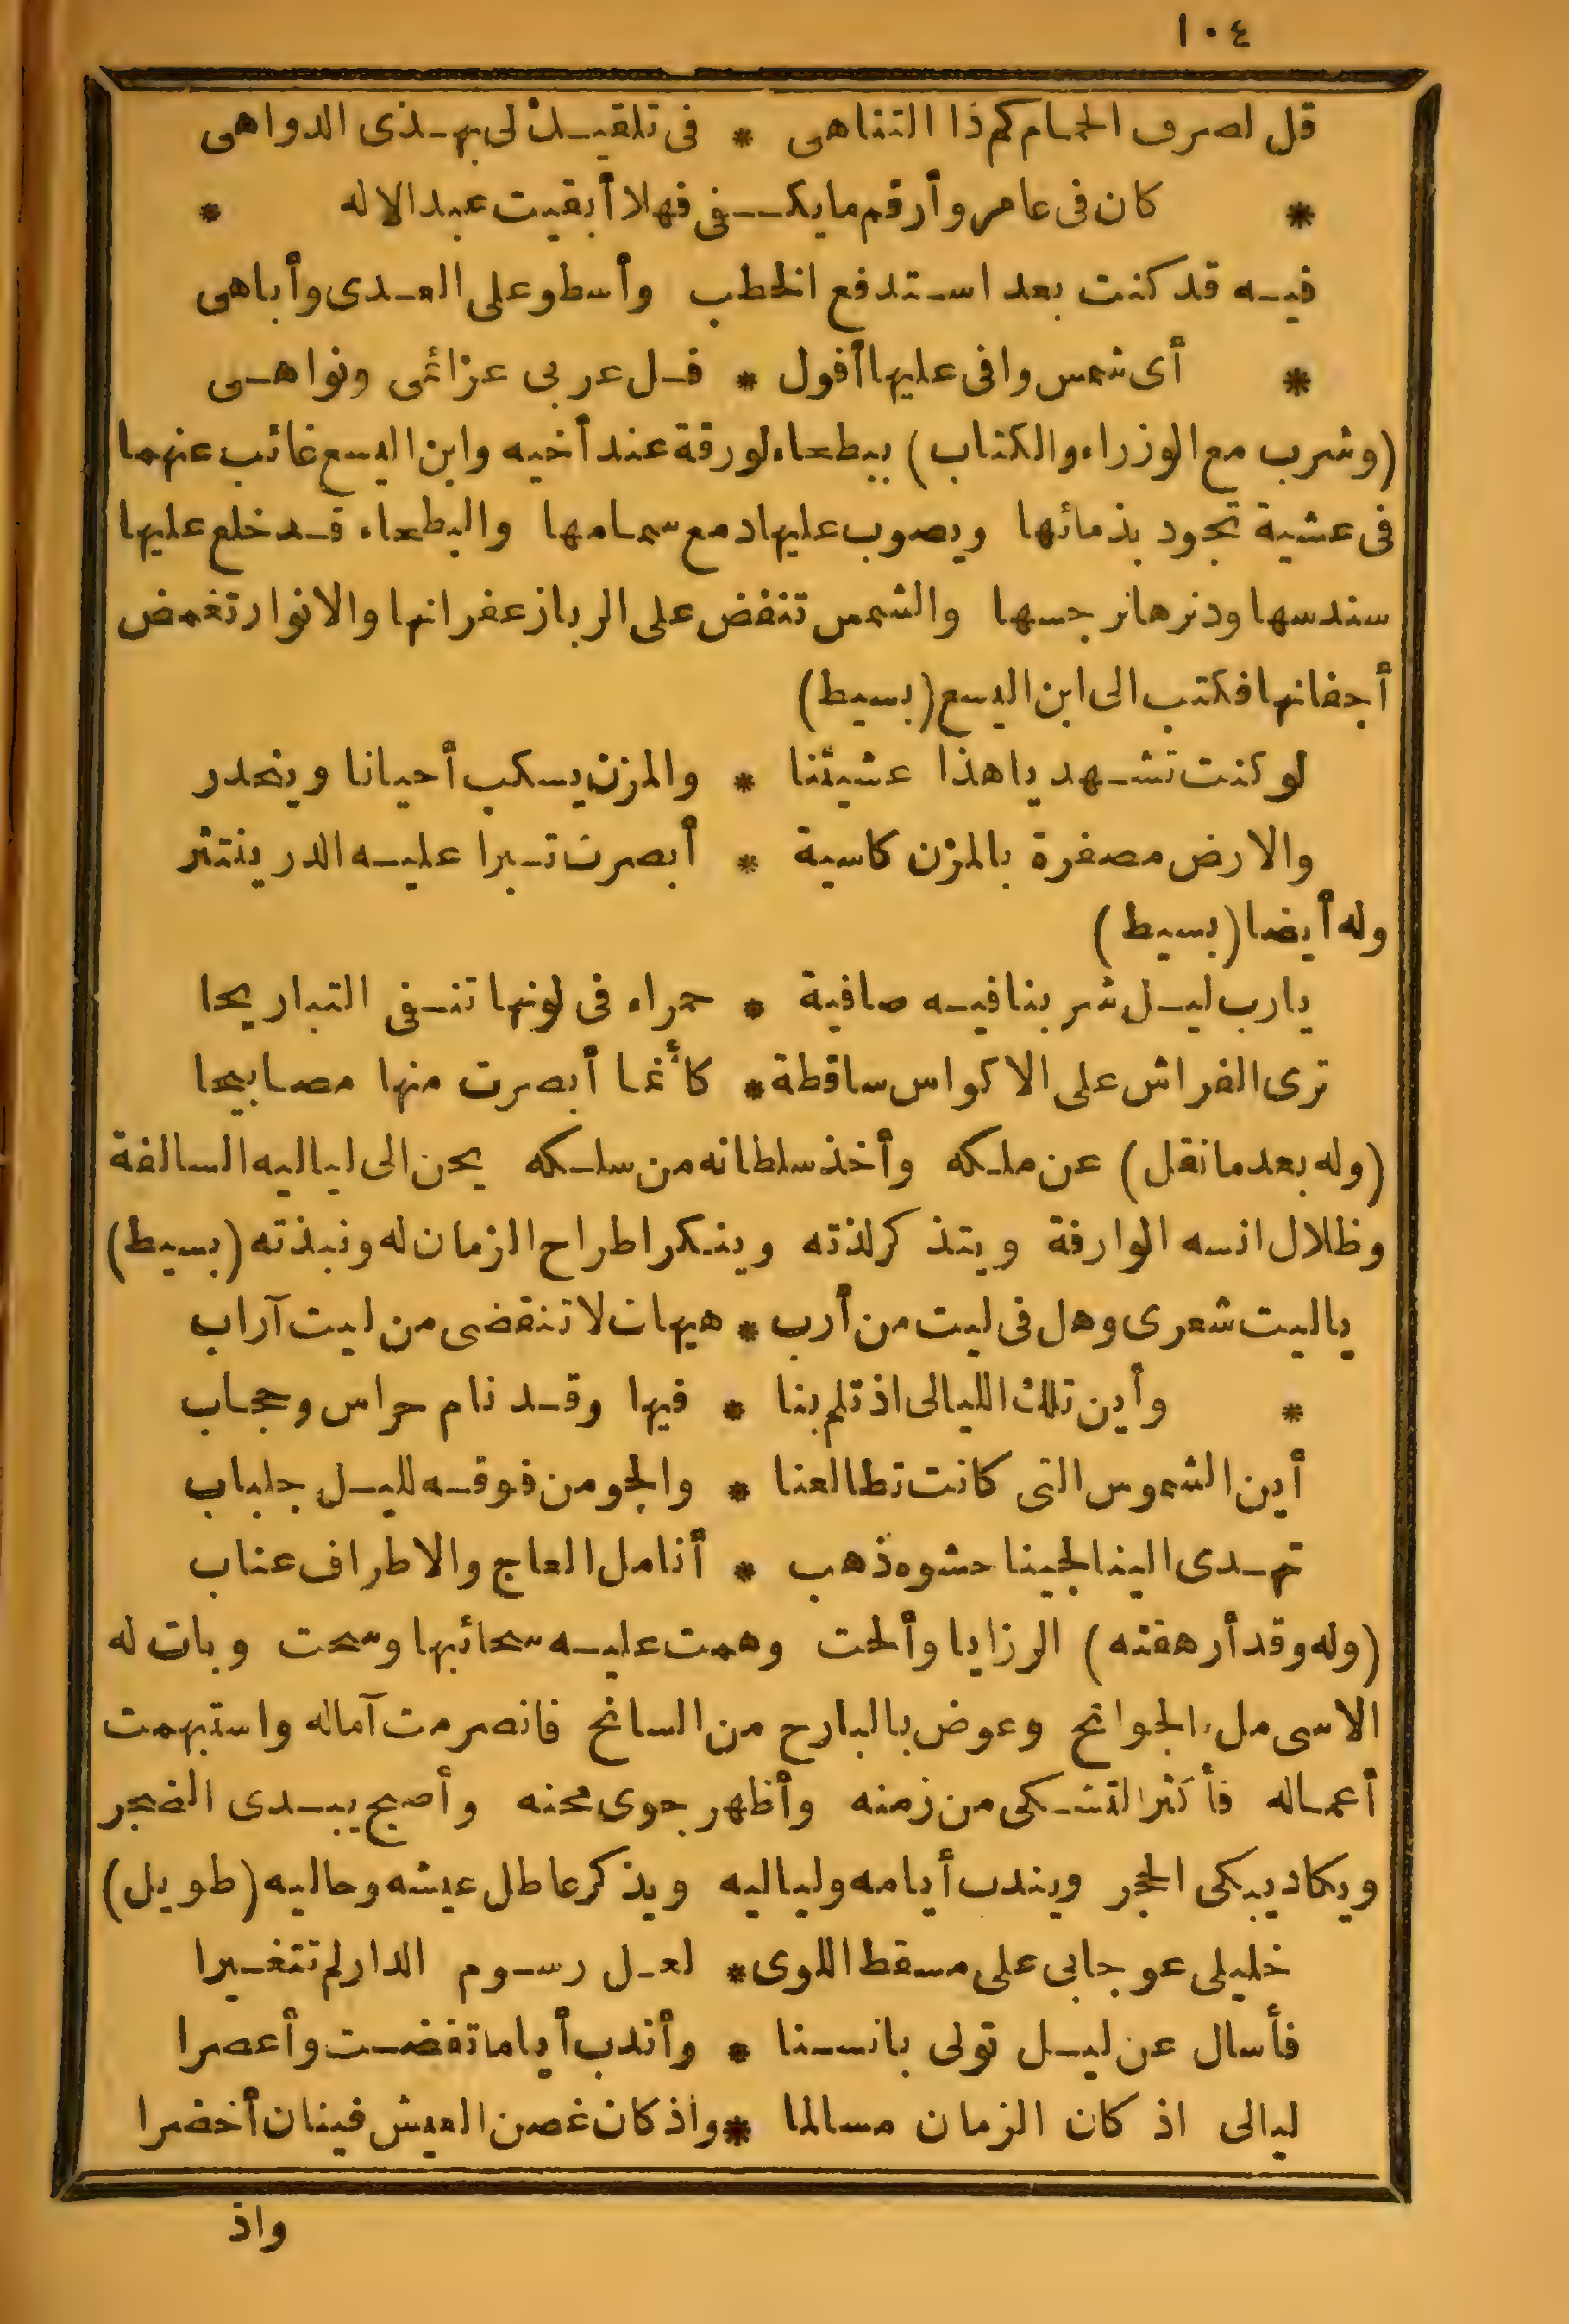 ١٠٤
قل لصرف الحمام كم ذا التناهى * فى تلقيك لى بهذى الدواهى
* كان فى عامر وأرقم ما يكفى فهلا أبقيت عبد الاله *
فيه قد كنت بعد استدفع الخطب وأسطو على العدى وأباهى
* أى شمس وافى عليها أفول * فل عربى عزائمى ونواهى
(وشرب مع الوزراء والكتاب) ببطحاء لورقة عند أخيه وابن اليسع غائب عنهما
فى عشية تجود بذمائها ويصوب عليها دمع سمامها والبطحاء قد خلع عليها
سندسها ودنرها نرجسها والشمس تنفض على الربا زعفرانها والانوار تغمض
أجفانها فكتب الى ابن اليسع (بسيط)
لو كنت تشهد يا هذا عشيتنا * والمزن يسكب أحيانا وينحدر
والارض مصفرة بالمزن كاسية * أبصرت تبرا عليه الدر ينتثر
وله أيضا (بسيط)
يارب ليل شربنا فيه صافية * حمراء فى لونها تنفى التباريحا
ترى الفراش على الاكواس ساقطة * كأنما أبصرت منها مصابيحا
(وله بعد ما نقل) عن ملكه وأخذ سلطانه من سلكه يحن الى لياليه السالفة
وظلال انسه الوارفة ويتذكر لذته وينكر اطراح الزمان له ونبذته (بسيط)
ياليت شعرى وهل فى ليت من أرب * هيهات لا تنقضى من ليت آراب
* وأين تلك الليالى اذ تلم بنا * فيها وقد نام حراس وحجاب
أين الشموس التى كانت تطالعنا * والجو من فوقه لليل جلباب
تهدى الينا لجينا حشوه ذهب * أنامل العاج والاطراف عناب
(وله وقد أرهفته) الرزايا وألحت وهمت عليه سحائبها وسحت وبات له
الاسى ملء الجوانح وعوض بالبارح من السانح فانصرمت آماله واستبهمت
أعماله فأكثر التشكى من زمنه وأظهر جوى محنه وأصبح يبدى الضجر
ويكاد يبكى الحجر ويندب أيامه ولياليه ويذكر عاطل عيشه وحاليه (طويل)
خليلى عوجا بى على مسقط اللوى * لعل رسوم الدار لم تتغيرا
فأسال عن ليل تولى بانسنا * وأندب أياما تقضت وأعصرا
ليالى اذ كان الزمان مسالما * واذ كان غصن العيش فينان أخضرا
واذ